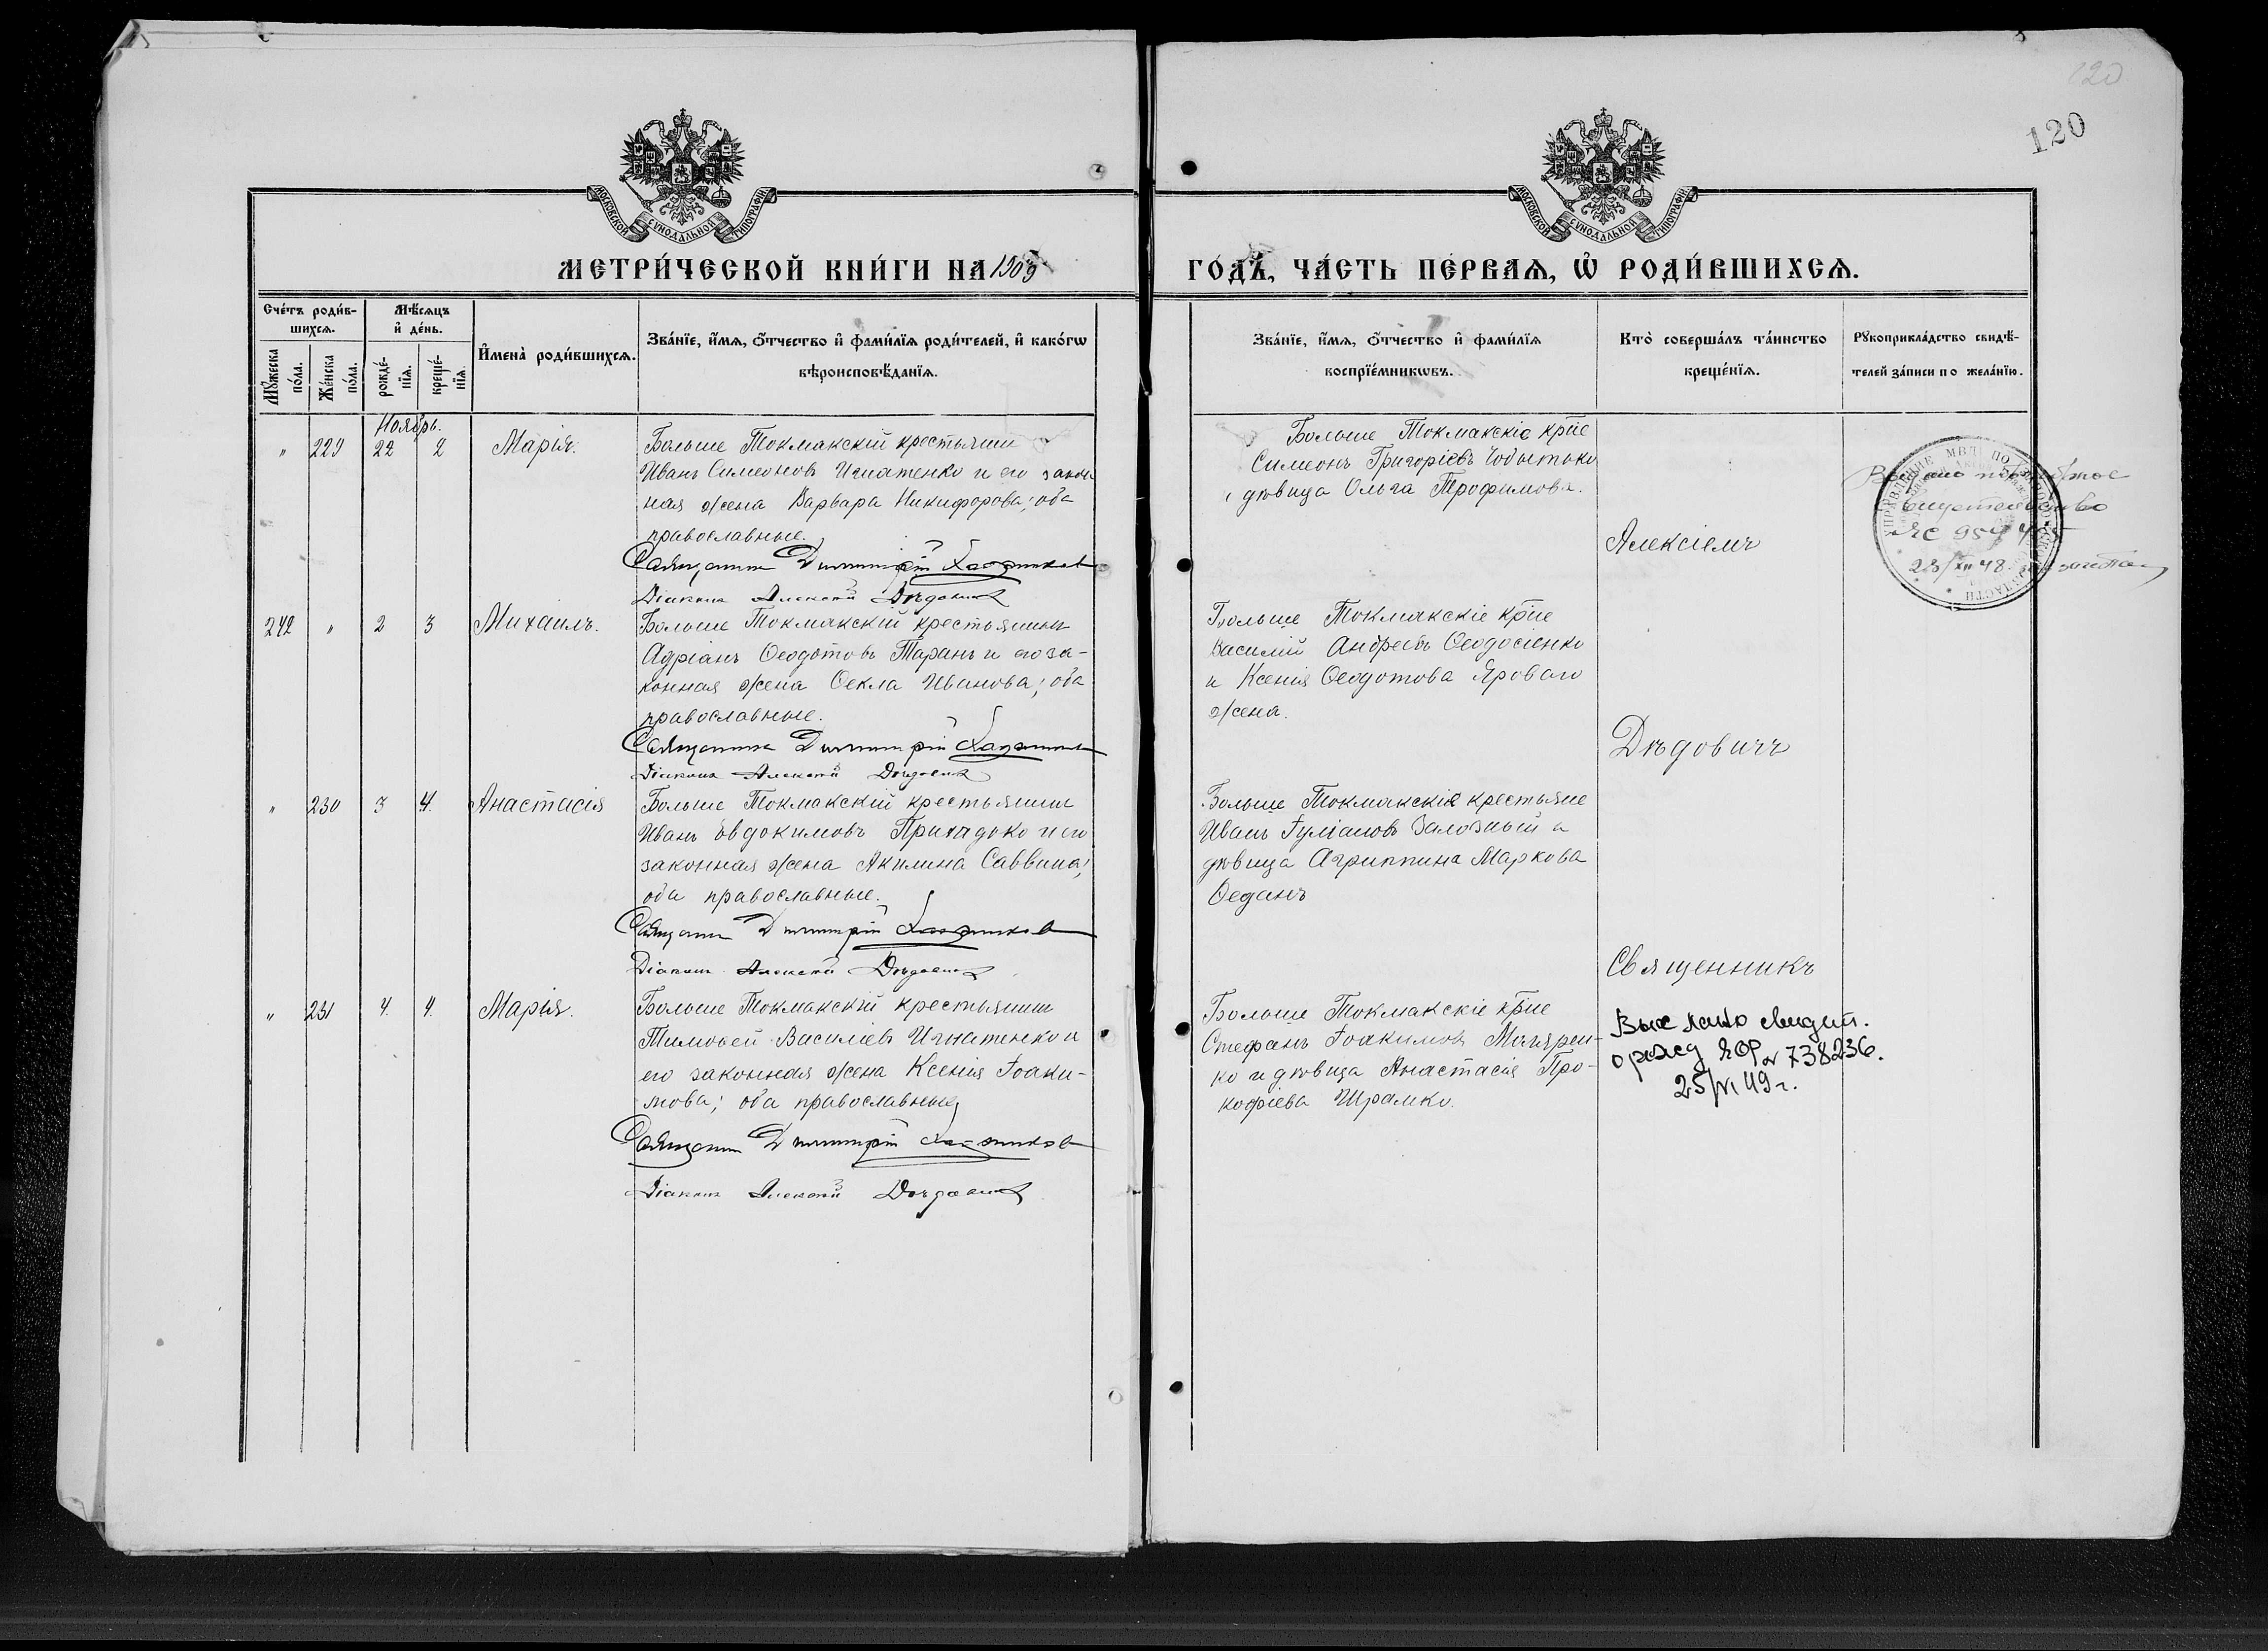 120
120
МОСКОВСКОЙ СѴНОДАЛЬНОЙ ТИПОГРАФІИ
МОСКОВСКОЙ СѴНОДАЛЬНОЙ ТИПОГРАФІИ
МЕТРИ́ЧЕСКОЙ КНИ́ГИ НА 1909
ГО́ДЪ, ЧА́СТЬ ПЕ́РВАЯ, Ѡ҆ РОДИ́ВШИХСЯ.
Сче́тъ роди́в-
шихся.
Мѣ́сяцъ
и҆ де́нь.
Мꙋ́жеска по́ла.
Же́нска по́ла.
рожде́-
нїя.
креще́-
нїя.
И҆мена̀ роди́вшихся.
Зва́нїе, и҆́мя, ѻ҆́тчество и҆ фами́лїя роди́телей, и҆ како́гѡ
вѣроисповѣ́данїя.
Зва́нїе, и҆́мя, ѻ҆́тчество и҆ фами́лїя
воспрїе́мникѡвъ.
Кто̀ соверша́лъ та́инство
креще́нїя.
Рꙋкоприкла́дство свидѣ́-
телей за́писи по жела́нїю.
Ноябрь.
" 229 22 2 Марія.
Больше Токмакскій крестьянин
Иванъ Симеоновъ Игнатенко и его закон
ная жена Варвара Никифорова; оба
православные.
Священник Димитрій
Діаконъ Алексѣй Дѣдович
Больше Токмакскіе крпе
Симеонъ Григоріевъ
и дѣвица Ольга Трофимова.
Алексіемъ
УПРАВЛЕНИЕ МВД ПО ЗАПОРОЖСКОЙ ОБЛАСТИ
Выдано повторное
свидетельство
ЯС
23/XII 48.
242 " 2 3 Михаилъ.
Больше Токмакскій крестьянинъ
Адріанъ Ѳеодотовъ Таранъ и его за-
конная жена Ѳекла Иванова; оба
православные.
Священник Димитрій
Діаконъ Алексѣй Дѣдович
Больше Токмакскіе крпе
Василій Андреевъ Ѳеодосіенко
и Ксенія Ѳеодотова Ярового
жена.
Дѣдовичъ
" 230 3 4. Анастасія
Больше Токмакскій крестьянин
Иванъ Евдокимовъ Приходько и его
законная жена Акилина Саввина;
оба православные.
Священник Димитрій
Діаконъ Алексѣй Дѣдович
Больше Токмакскіе крестьяне
Иванъ Іуліановъ Залозный и
дѣвица Агриппина Маркова
Ѳеданъ
Священникъ
" 231 4. 4. Марія.
Больше Токмакскій крестьянин
Тимоѳей Василіевъ Игнатенко и
его законная жена Ксенія Іоаки-
мова; оба православные
Священник Димитрій
Діаконъ Алексѣй Дѣдович
Больше Токмакскіе крпе
Стефанъ Іоакимовъ
ко и дѣвица Анастасія Про-
кофіева Шрамко.
Выслано свидет.
о рожд ЯОР № 738236.
25/VI 49 г.